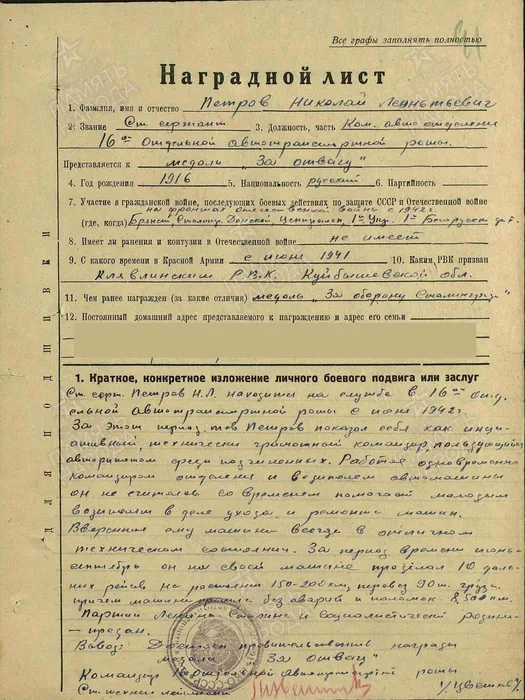 Все графы заполнять полностью
Наградной лист
1. Фамилия, имя и отчество Петров Николай Леонтьевич
2. Звание Ст. сержант 3. Должность, часть Ком. авто отделения
16ой Отдельной автотранспортной роты.
Представляется к медали „За отвагу“
4. Год рождения 1916 5. Национальность русский 6. Партийность
7. Участие в гражданской войне, последующих боевых действиях по защите СССР и Отечественной войне
на фронтах отечественной войны с 1942г.
(где, когда) Брянск. Сталинг. Донской, Централън, 1й Укр. 1й Белорусск
8. Имеет ли ранения и контузии в Отечественной войне не имеет
9. С какого времени в Красной Армии с июня 1941 10. Каким РВК призван
Клявлинским Р.В.К. Куйбышевской обл.
11. Чем ранее награжден (за какие отличия) медаль „За оборону Сталинграда“
12. Постоянный домашний адрес представляемого к награждению и адрес его семьи
1. Краткое, конкретное изложение личного боевого подвига или заслуг
Ст. серж. Петров Н.Л. находится на службе в 16ой отд-
ельной автотранспортной роты с июня 1942г.
За этот период тов Петров показал себя как иници-
ативный технически грамотный командир, пользующийся
авторитетом среди подчиненных. Работая одновременно
командиром отделения и водителем автомашины
он не считался со временем помогал молодым
водителям в деле ухода и ремонта машин.
Вверенные ему машины всегда в отличном
техническом состоянии. За период времени июнь-
сентябрь он на своей машине проделал 10 даль-
них рейсов на расстояние 150-200км, перевез 90т. груза
причем машина прошла без аварий и поломок 8,500км.
Партии Ленина Сталина и Социалистической родине
- предан.
Вывод: Достоин правительственной награды
медали „За отвагу“
Командир 16 отдельной автотранспортной роты
Ст. техник лейтенант /Цветков/
ДЛЯ ПОДШИВКИ
ПАМЯТЬ НАРОДА